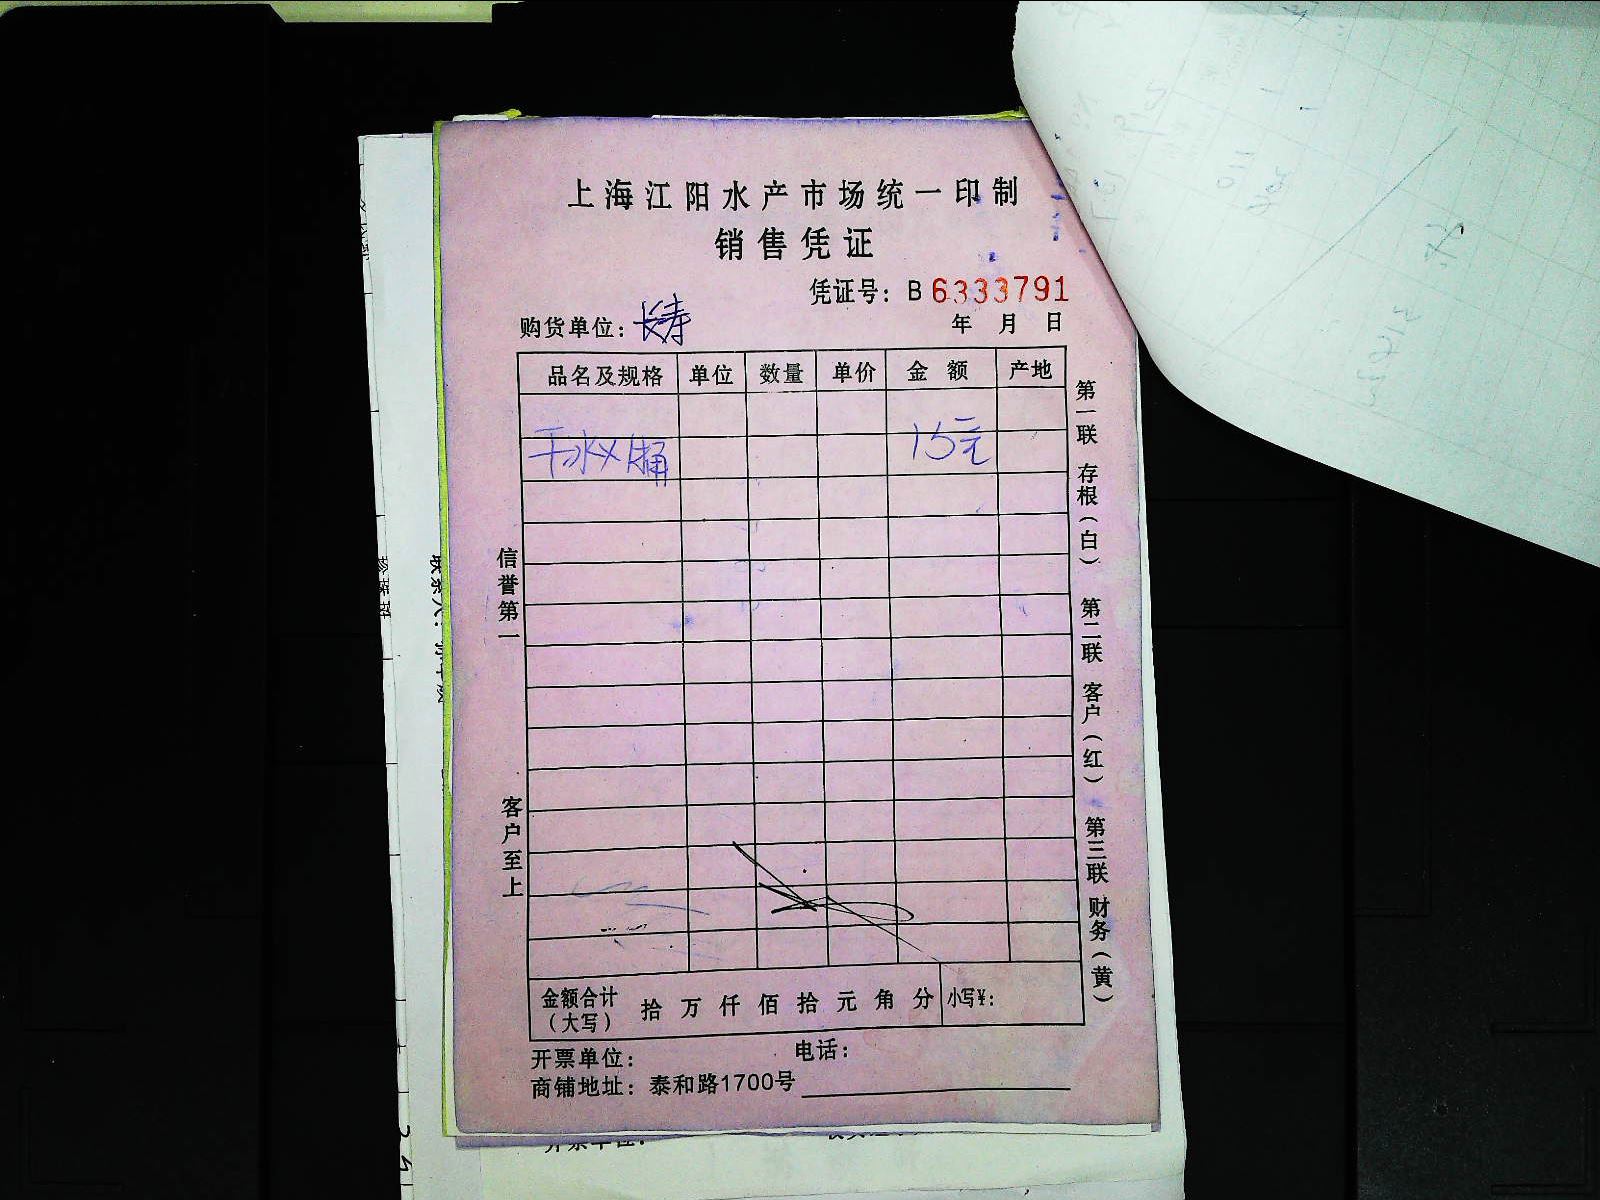 上海江阳水产市场统一印制
销售凭证
凭证号：B 6333791
购货单位：长寿
年 月 日
品名及规格 单位 数量 单价 金额 产地
干冰X1桶 15元
信誉第一
客户至上
第一联 存根（白） 第二联 客户（红） 第三联 财务（黄）
金额合计（大写） 拾万仟佰拾元角分 小写¥：
开票单位：
电话：
商铺地址：泰和路1700号